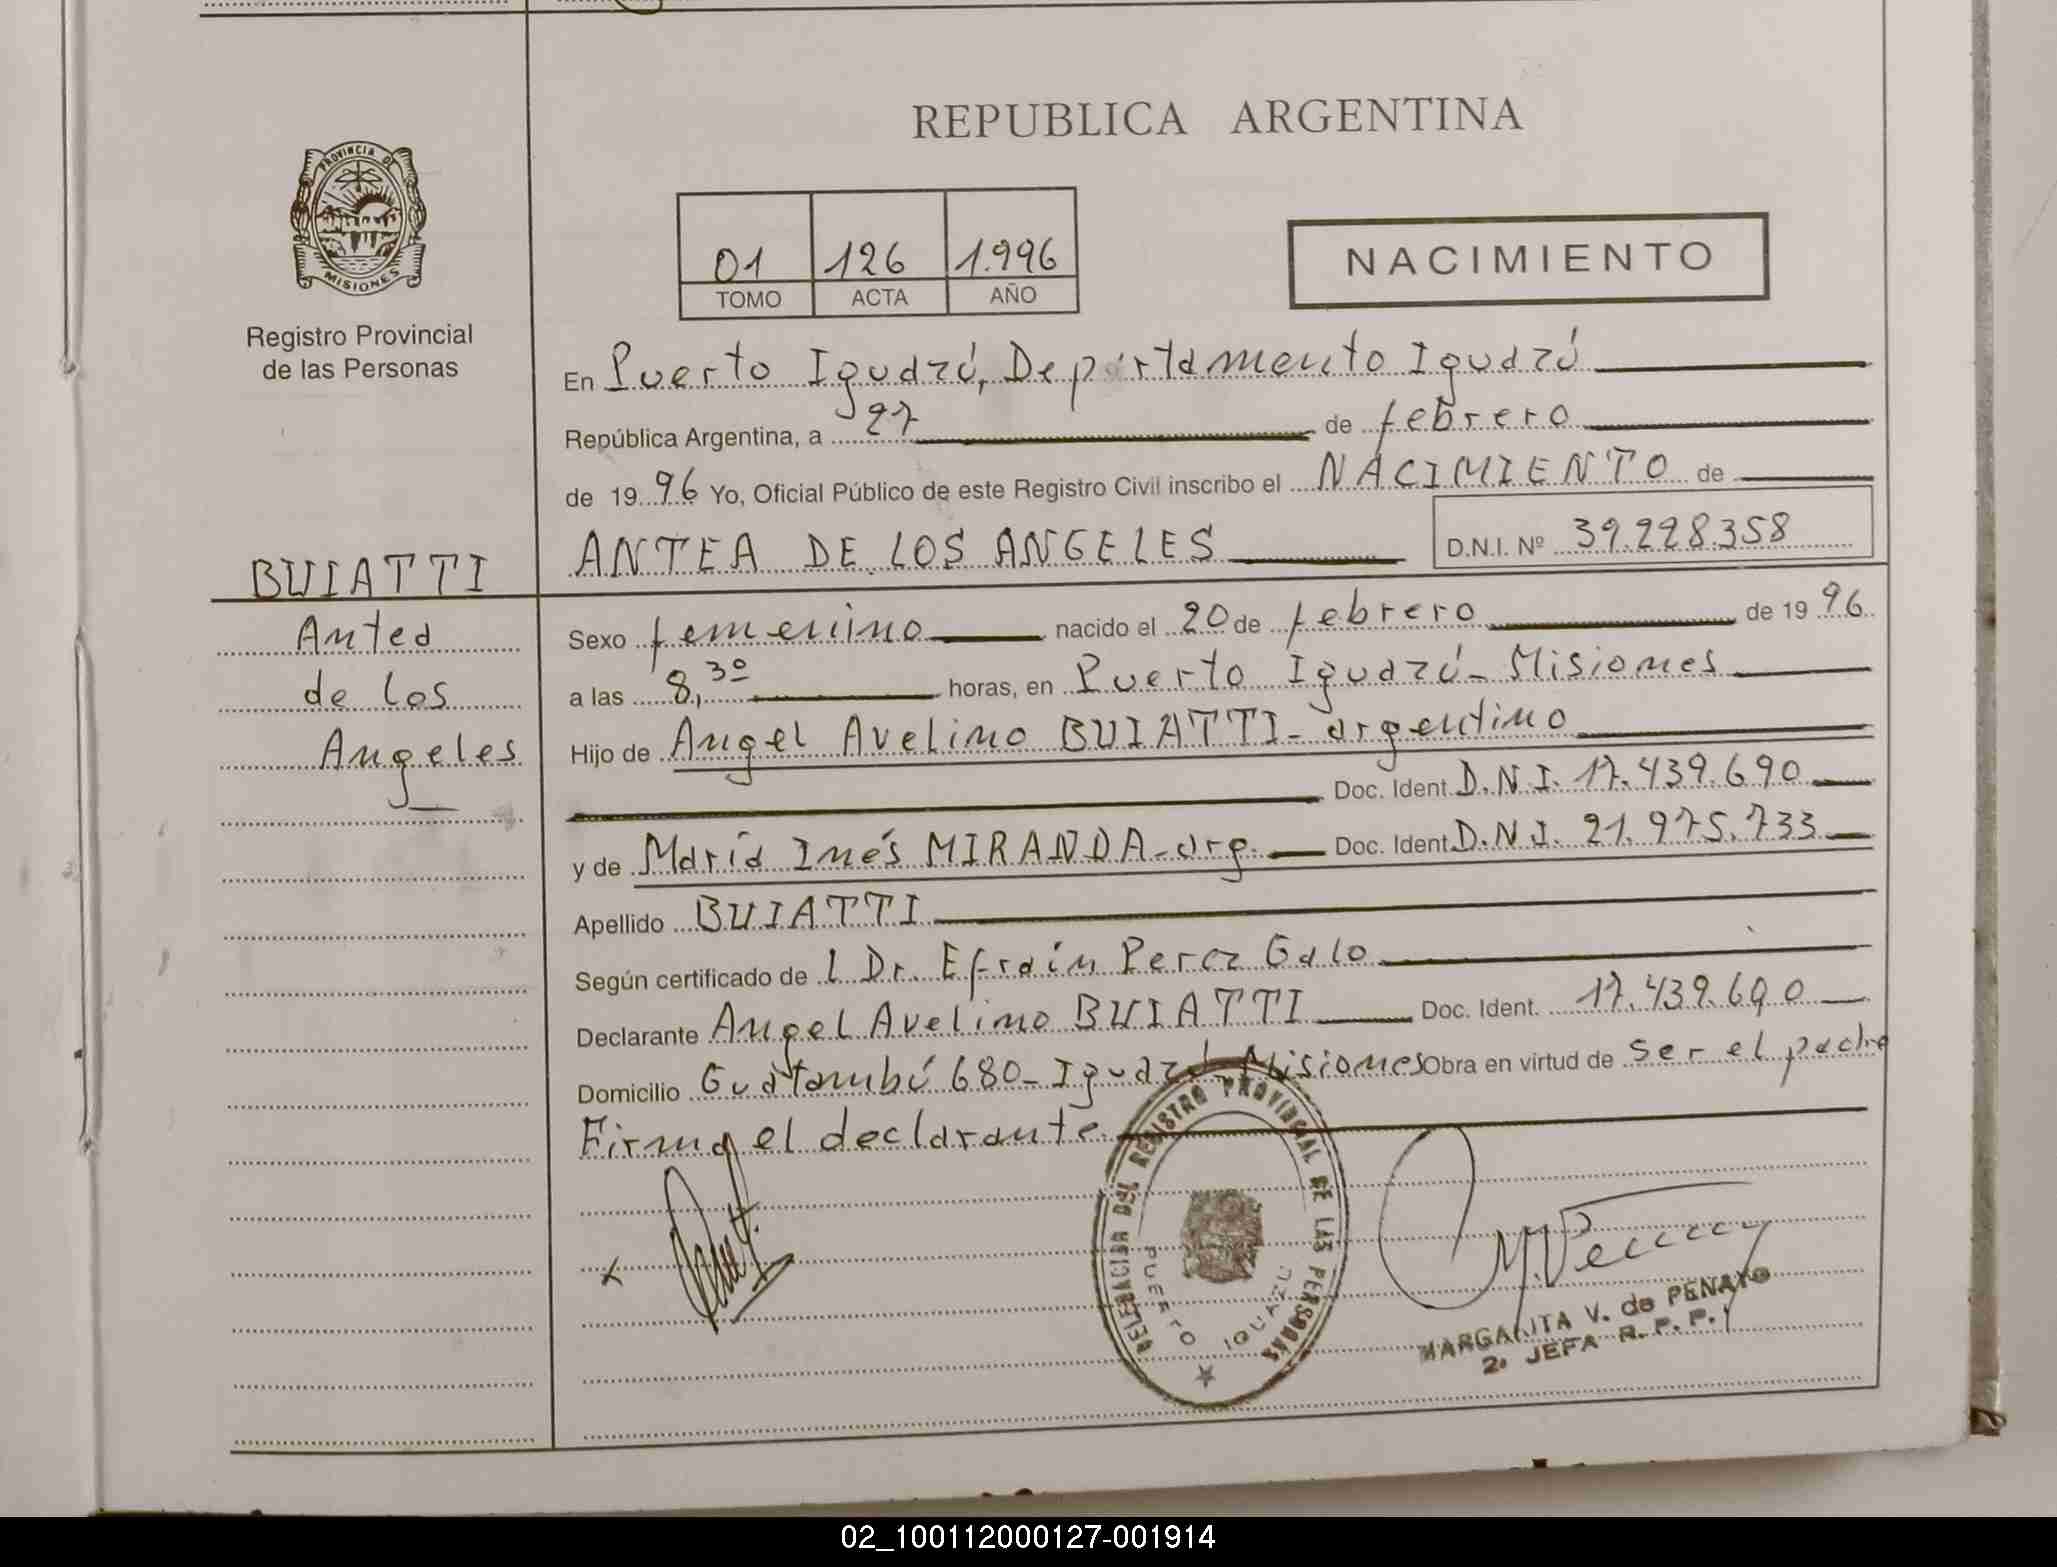 REPUBLICA ARGENTINA
PROVINCIA DE MISIONES
Registro Provincial
de las Personas
01 126 1.996
TOMO ACTA AÑO
NACIMIENTO
En Puerto Iguazú, Departamento Iguazú
República Argentina, a 27 de febrero
de 1996 Yo, Oficial Público de este Registro Civil inscribo el NACIMIENTO de
ANTEA DE LOS ANGELES D.N.I. Nº 39.228.358
BUIATTI
Antea
de los
Angeles
Sexo femenino nacido el 20 de febrero de 1996
a las 8,30 horas, en Puerto Iguazú - Misiones
Hijo de Angel Avelino BUIATTI - argentino
Doc. Ident. D.N.I. 17.439.690
y de María Inés MIRANDA - arg. Doc. Ident. D.N.I. 21.975.733
Apellido BUIATTI
Según certificado de l Dr. Efraín Perez Galo
Declarante Angel Avelino BUIATTI Doc. Ident. 17.439.690
Domicilio Guatambú 680 - Iguazú - Misiones Obra en virtud de ser el padre
Firma el declarante.
DELEGACION DEL REGISTRO PROVINCIAL DE LAS PERSONAS
PUERTO IGUAZU
MARGARITA V. de PENAYO
2a JEFA R. P. P.
02_100112000127-001914